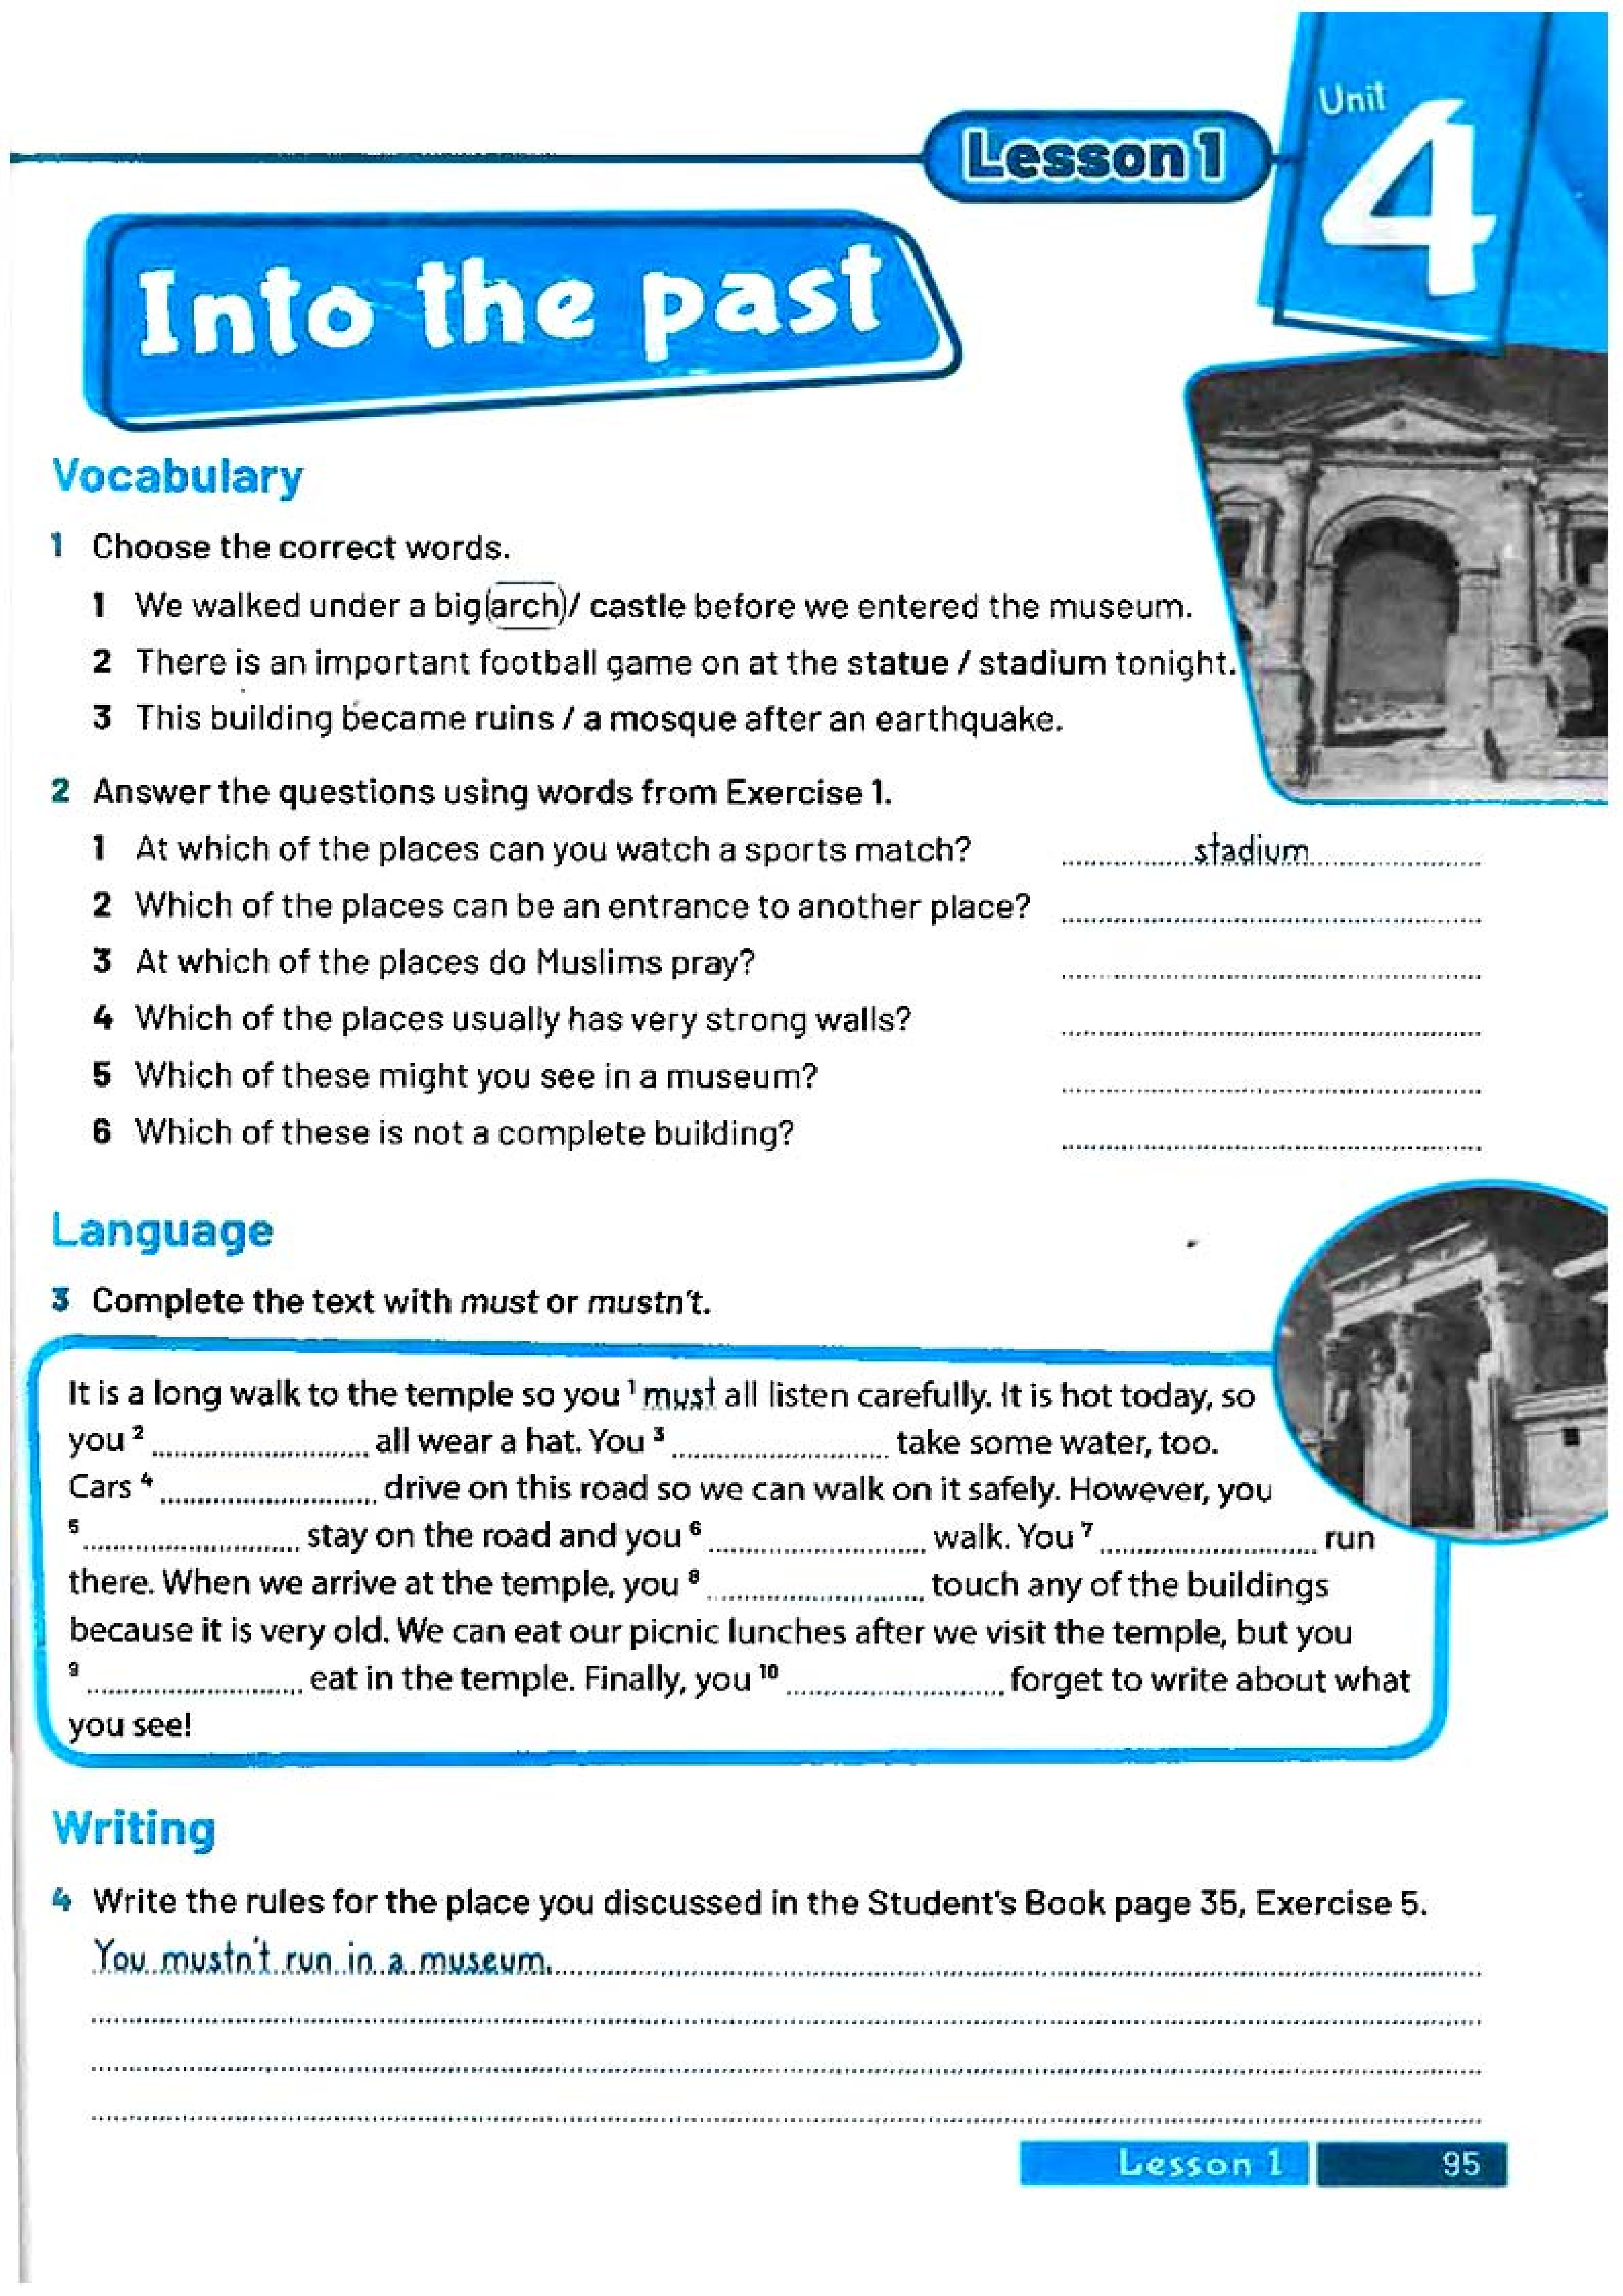 Unit
4
Lesson 1
Into the past
Vocabulary
1 Choose the correct words.
1 We walked under a big arch / castle before we entered the museum.
2 There is an important football game on at the statue / stadium tonight.
3 This building became ruins / a mosque after an earthquake.
2 Answer the questions using words from Exercise 1.
1 At which of the places can you watch a sports match? stadium
2 Which of the places can be an entrance to another place?
3 At which of the places do Muslims pray?
4 Which of the places usually has very strong walls?
5 Which of these might you see in a museum?
6 Which of these is not a complete building?
Language
3 Complete the text with must or mustn't.
It is a long walk to the temple so you 1 must all listen carefully. It is hot today, so
you 2 ........ all wear a hat. You 3 ........ take some water, too.
Cars 4 ........ drive on this road so we can walk on it safely. However, you
5 ........ stay on the road and you 6 ........ walk. You 7 ........ run
there. When we arrive at the temple, you 8 ........ touch any of the buildings
because it is very old. We can eat our picnic lunches after we visit the temple, but you
9 ........ eat in the temple. Finally, you 10 ........ forget to write about what
you see!
Writing
4 Write the rules for the place you discussed in the Student's Book page 35, Exercise 5.
You mustn't run in a museum.
Lesson 1 95